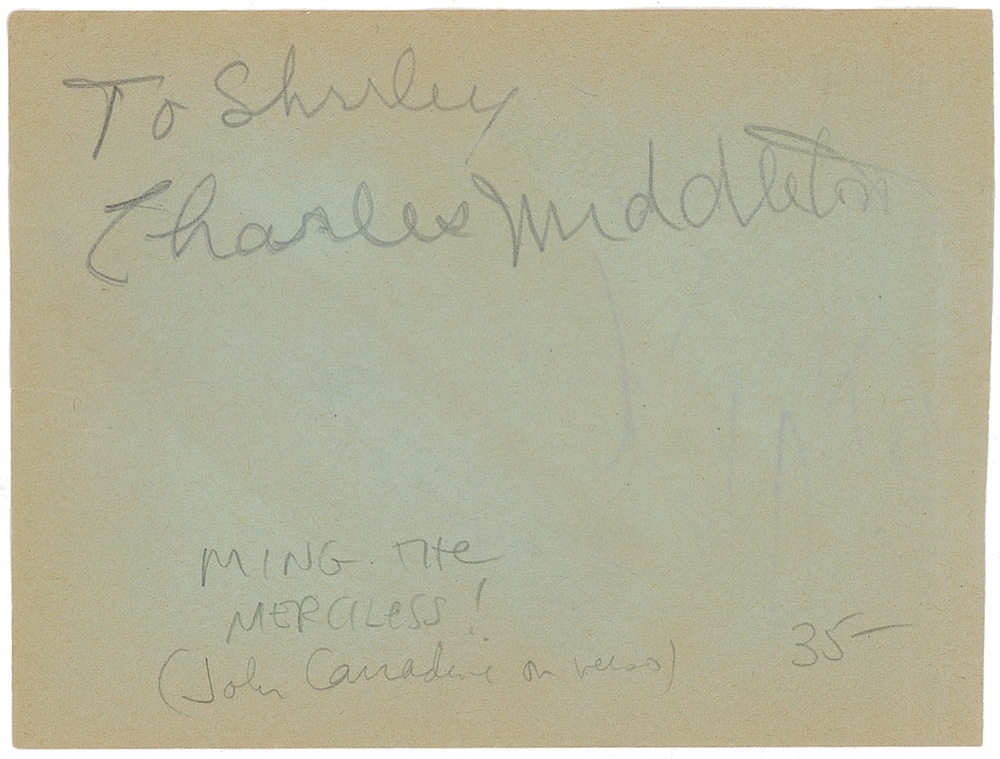 To Shirley
Charles Middleton
MING THE
MERCILESS!
(John Carradine on verso)
35-